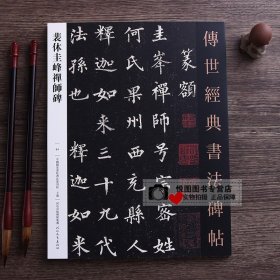 傳世經典書法碑帖
篆額
圭峯禪師号宗密姓
何氏果州西充縣人
釋迦如来三十九代
法孫也
迦如来
裴休圭峰禪師碑